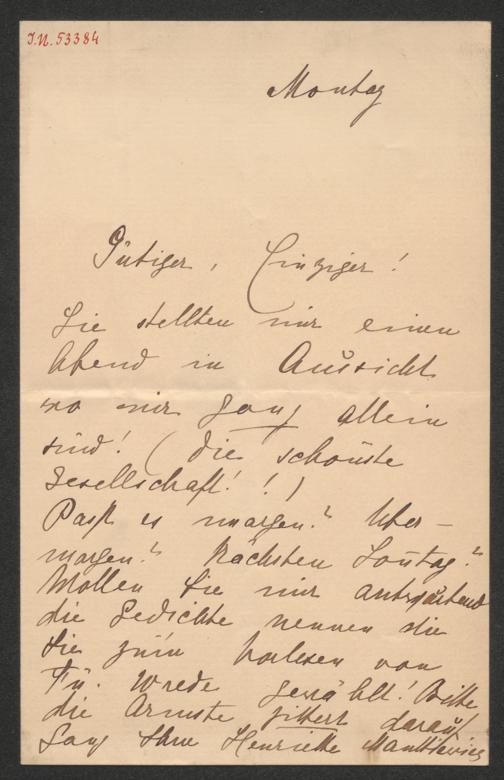 J.N. 53384
Montag
Gütiger, Einziger!
Sie stellten mir einen
Abend in Aussicht
wo wir ganz allein
sind! (die schönste
Gesellschaft!!)
Passt es morgen? Über-
morgen? Nächsten Sonntag?
Wollen Sie mir antwortend
die Gedichte nennen die
Sie zum Vorlesen von
Fü. Wrede gewählt! Bitte
die Ärmste zittert darauf
Ganz Ihre Henriette Mankiewicz